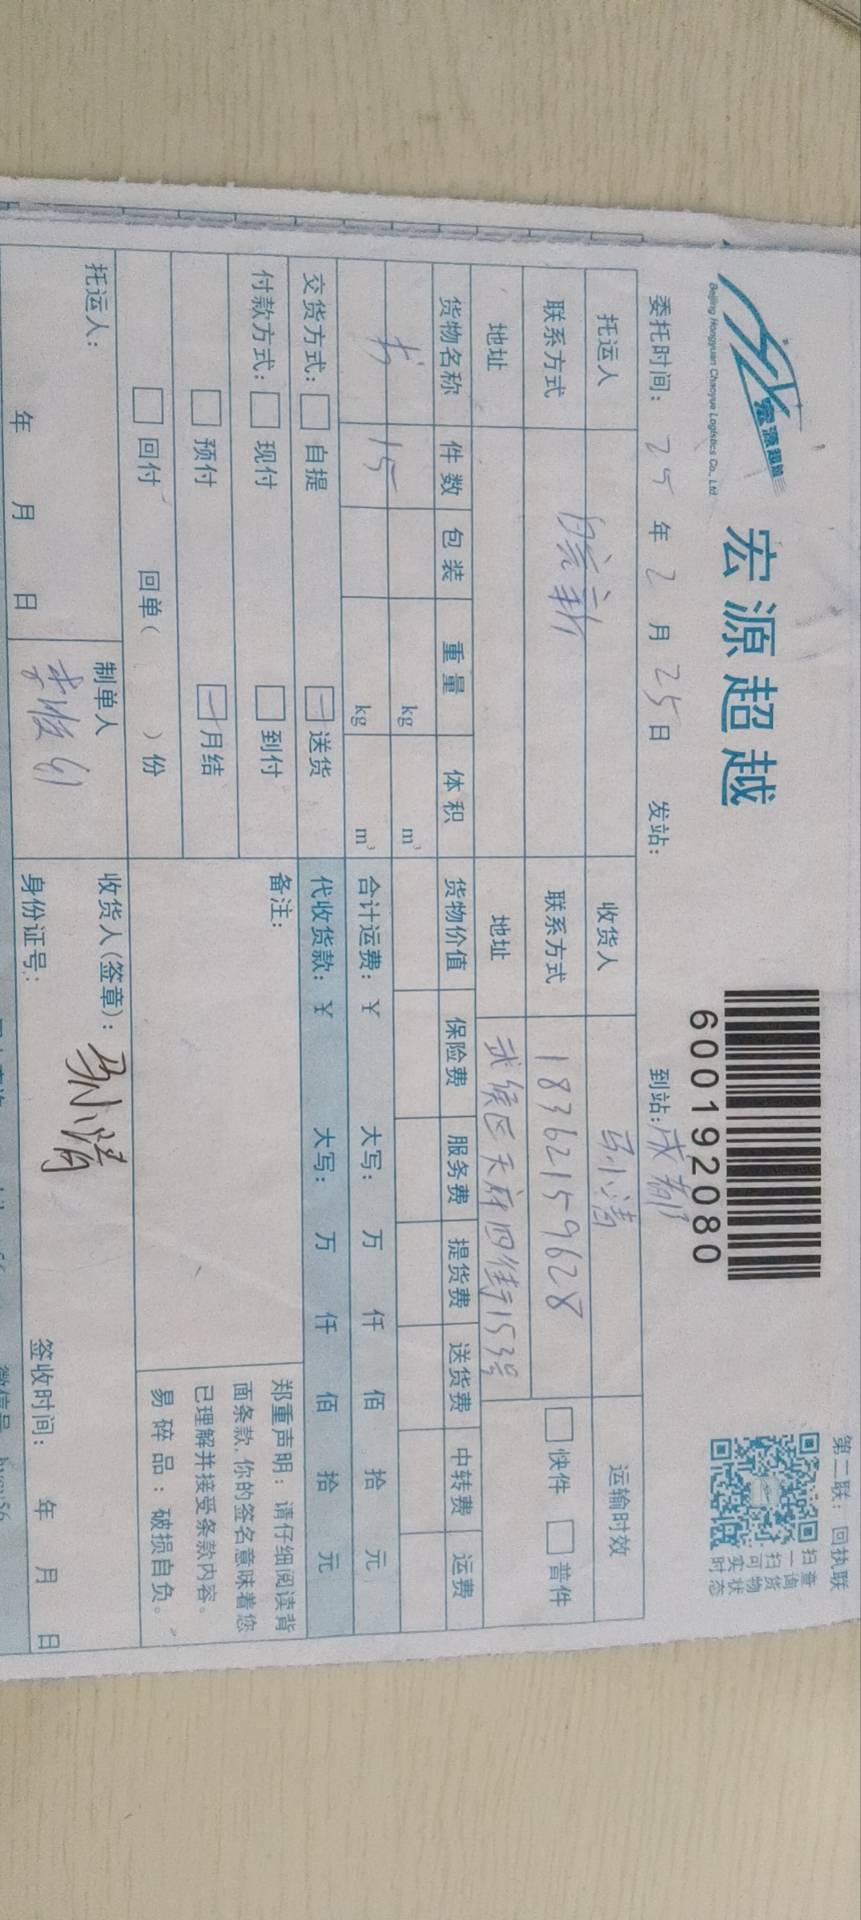 第二联：回执联
宏源超越
宏源超越
Beijing Hongyuan Chaoyue Logistics Co., Ltd
600192080
扫一扫可实时
查询货物状态
委托时间：25年2月25日 发站： 到站：成都
托运人 收货人 孙小清 运输时效
联系方式 联系方式 18362159628 快件 普件
地址 地址 武侯区天府四街153号
货物名称 件数 包装 重量 体积 货物价值 保险费 服务费 提货费 送货费 中转费 运费
书 15 kg m³
kg m³ 合计运费：¥ 大写： 万 仟 佰 拾 元
交货方式： 自提 送货 代收货款：¥ 大写： 万 仟 佰 拾 元
付款方式： 现付 到付 备注：
预付 月结
回付 回单（ ）份
郑重声明：请仔细阅读背
面条款，你的签名意味着您
已理解并接受条款内容。
易碎品：破损自负。
托运人： 制单人 收货人（签章）：孙小清
年 月 日 身份证号： 签收时间： 年 月 日